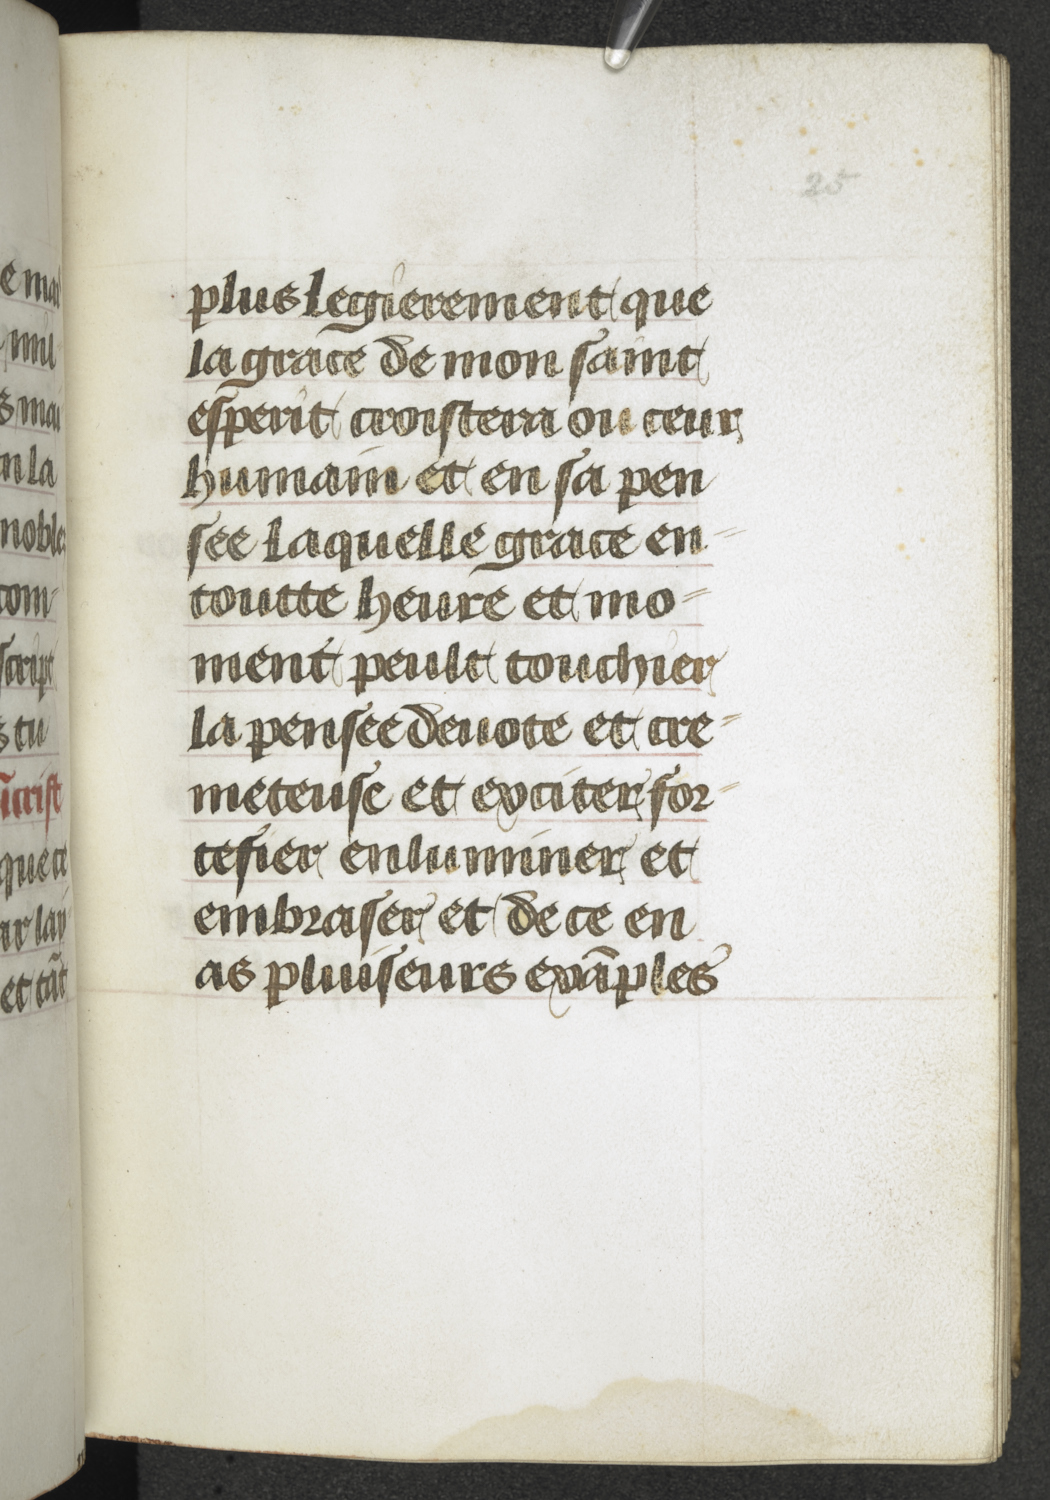 25
plus legierement que
la grace de mon saint
esperit croistera ou ceur
humain et en sa pen
see laquelle grace en-
toutte heure et mo-
ment peult touchier
la pensee deuote et cre-
meteuse et exciter for-
tefier enluminer et
embraser et de ce en
as pluiseurs exãples